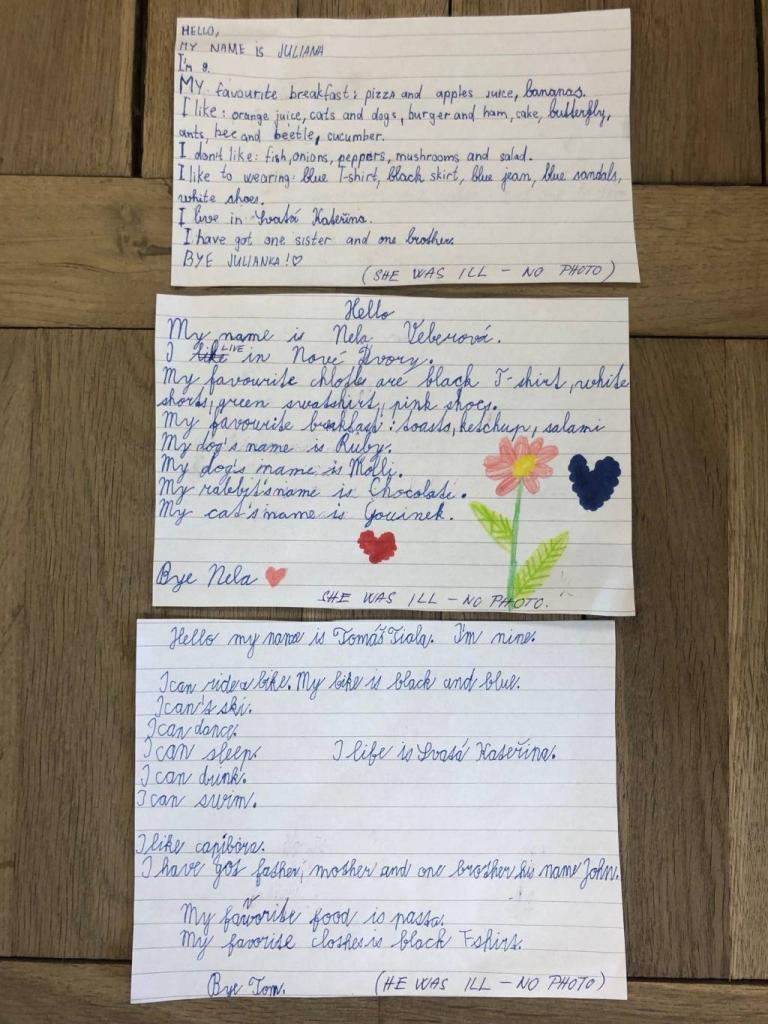 HELLO,
MY NAME IS JULIANA
I'm 9.
MY favourite breakfast: pizza and apples juice, bananas.
I like: orange juice, cats and dogs, burger and ham, cake, butterfly,
ants, bee and beetle, cucumber.
I don't like: fish, onions, peppers, mushrooms and salad.
I like to wearing: blue T-shirt, black skirt, blue jean, blue sandals,
white shoes.
I live in Svatá Kateřina.
I have got one sister and one brother.
BYE JULIANKA!♡
(SHE WAS ILL – NO PHOTO)
Hello
My name is Nela Veberová.
I LIVE in Nové Dvory.
My favourite chlothe are black T-shirt, white
shorts, green swatshirt, pink shoes.
My favourite breakfast: toasts, ketchup, salami
My dog's name is Ruby.
My dog's name is Molli.
My rabbit's name is Chocolate.
My cat's name is
Bye Nela
SHE WAS ILL – NO PHOTO.
Hello my name is Tomáš Fiala. I'm nine.
I can ride a bike. My bike is black and blue.
I can's ski.
I can dance.
I can sleep. I life is Svatá Kateřina.
I can dunk.
I can swim.
I like capibara.
I have got father, mother and one brother his name John.
My favorite food is pasta.
My favorite clothes is black T-shirt.
Bye Tom.
(HE WAS ILL – NO PHOTO)